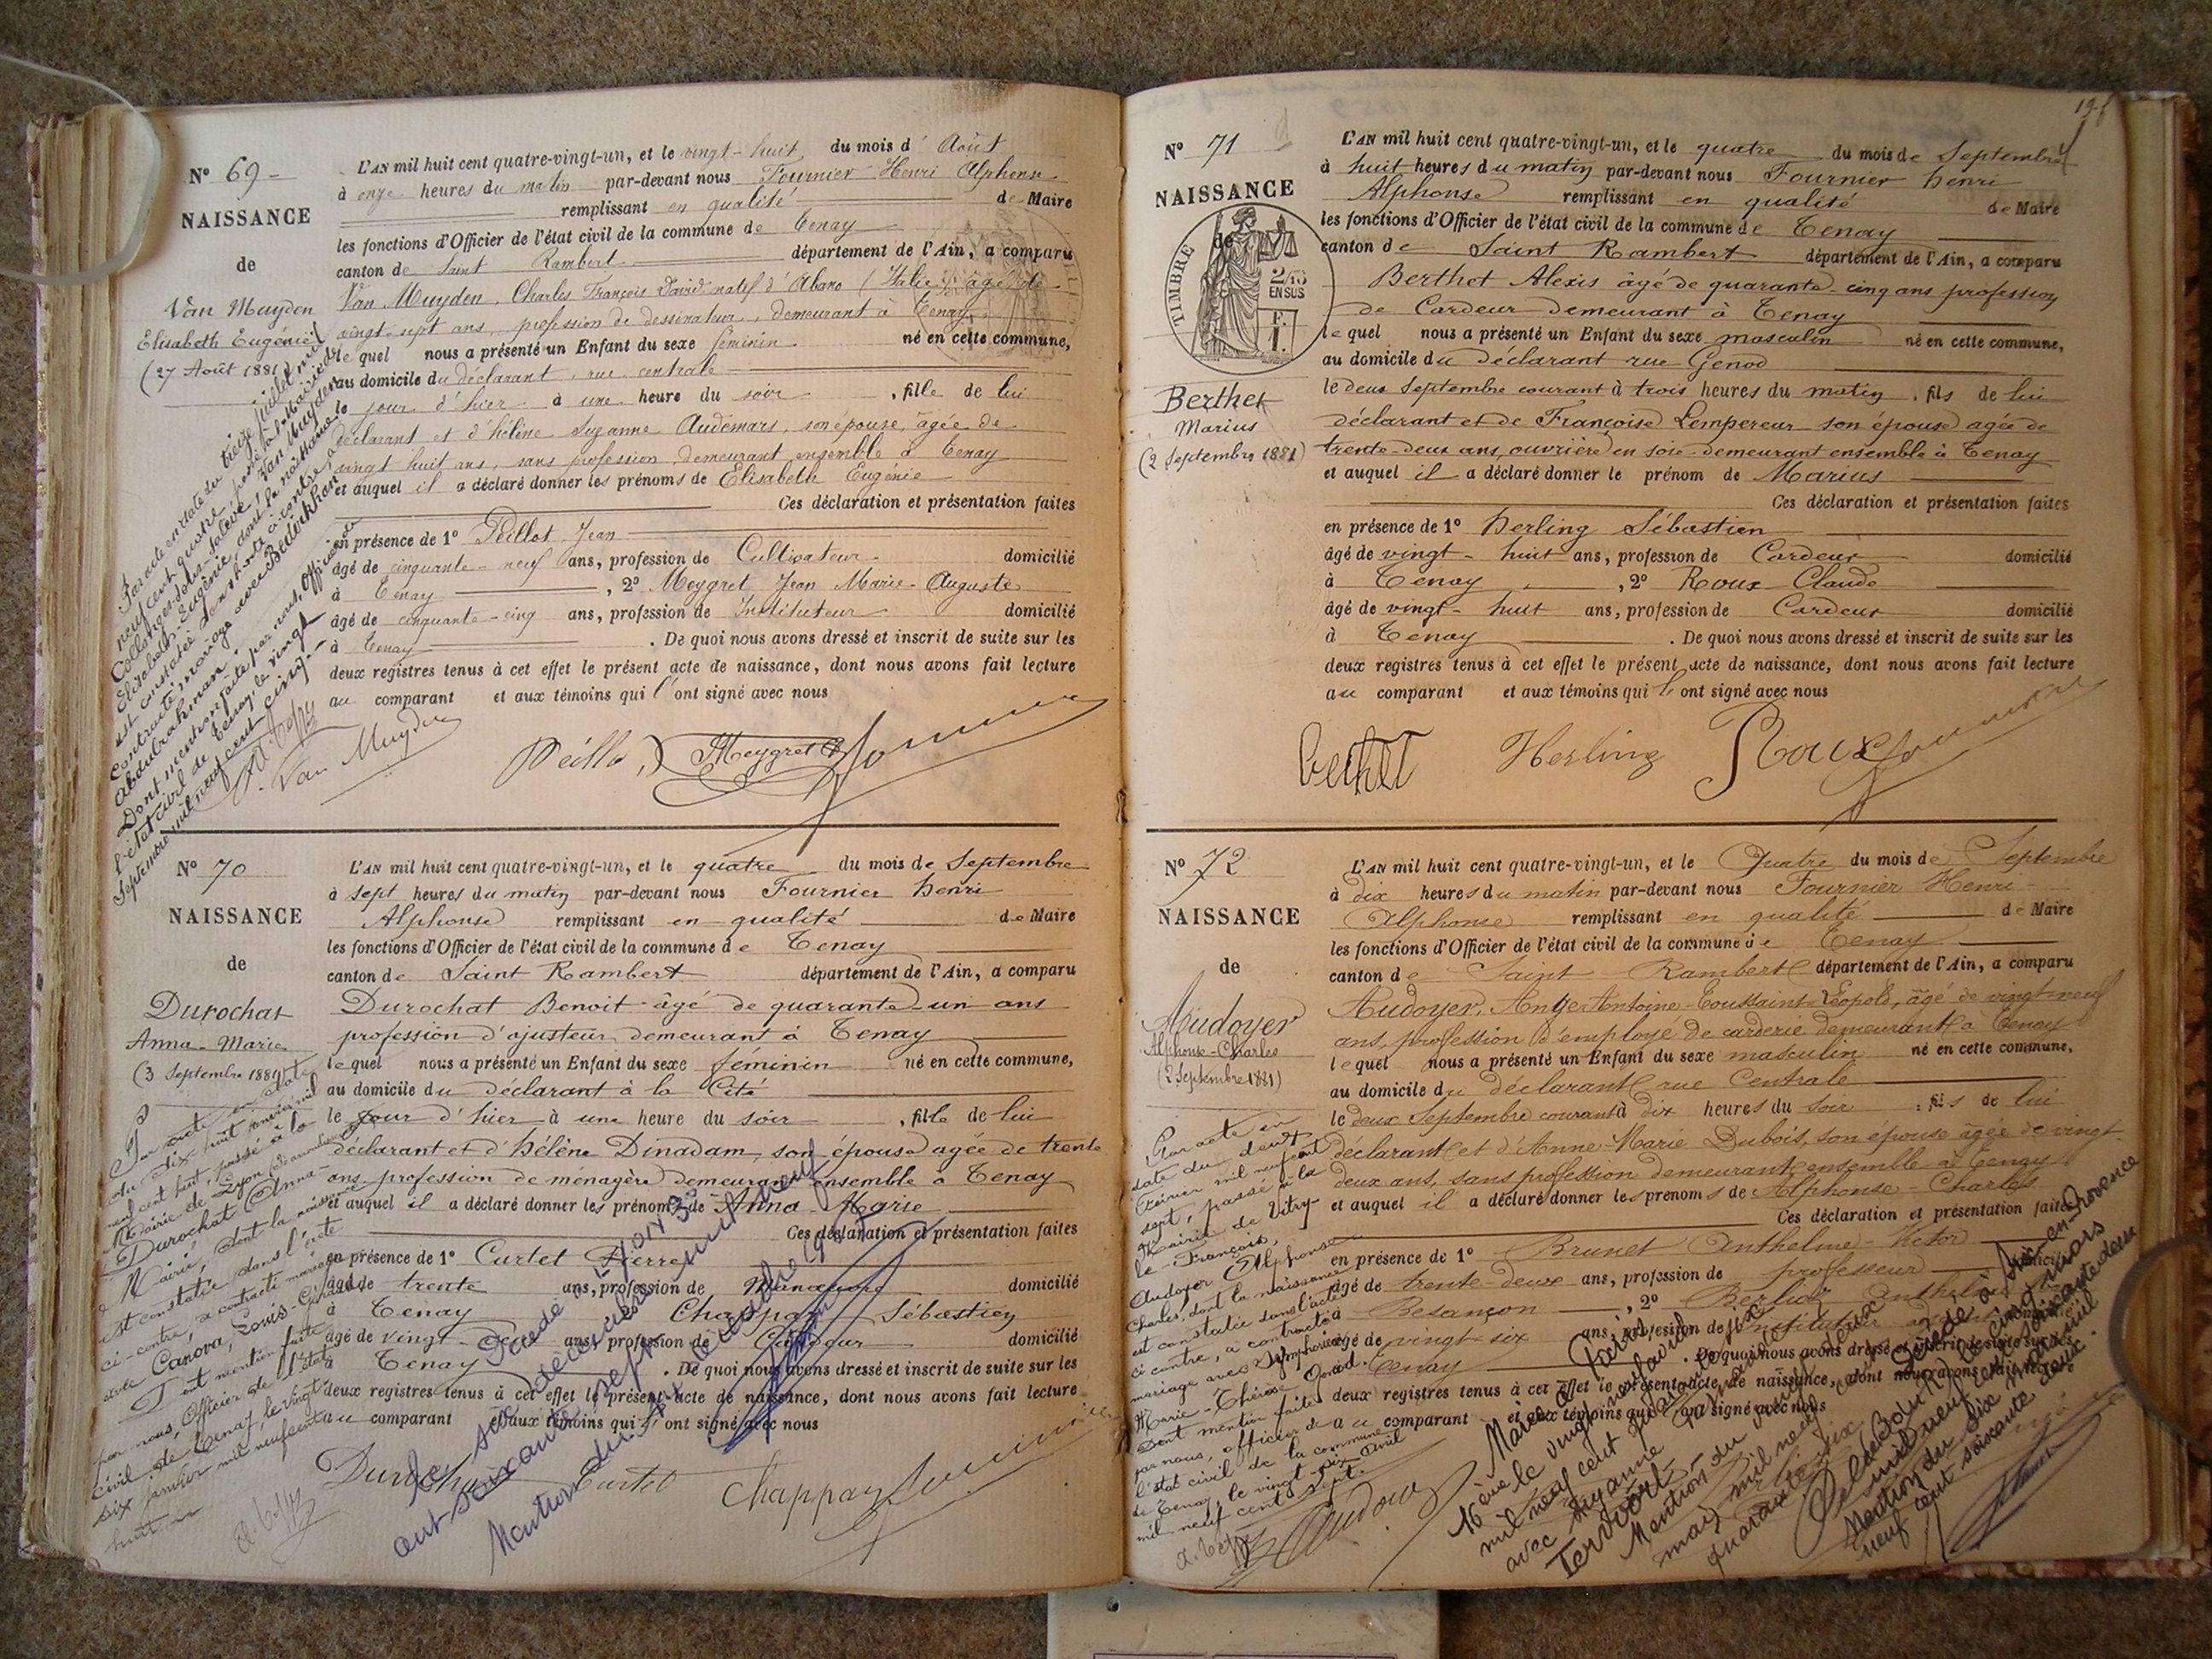 N° 69
NAISSANCE
de
Van Muyden
Elisabeth Eugénie
(27 Août 1881)
L'AN mil huit cent quatre-vingt-un, et le vingt-huit du mois d'Août
à onze heures du matin par-devant nous Fournier Henri Alphonse
remplissant en qualité de Maire
les fonctions d'Officier de l'état civil de la commune de Tenay
canton de Saint Rambert département de l'Ain, a comparu
Van Muyden, Charles François David natif d'Abano (Italie) âgé de
vingt-sept ans, profession de dessinateur, demeurant à Tenay
lequel nous a présenté un Enfant du sexe féminin né en cette commune,
au domicile du déclarant, rue centrale
le jour d'hier à une heure du soir, fille de lui
déclarant et d'hélène Suzanne Audemars, son épouse, âgée de
vingt huit ans, sans profession, demeurant ensemble à Tenay
et auquel il a déclaré donner les prénoms de Elisabeth Eugénie
Ces déclaration et présentation faites
en présence de 1° Peillot Jean
âgé de cinquante-neuf ans, profession de Cultivateur domicilié
à Tenay, 2° Meygret Jean Marie Auguste
âgé de cinquante-cinq ans, profession de Instituteur domicilié
à Tenay. De quoi nous avons dressé et inscrit de suite sur les
deux registres tenus à cet effet le présent acte de naissance, dont nous avons fait lecture
au comparant et aux témoins qui l'ont signé avec nous
Par acte en date du treize juillet mil
neuf cent quatre, passé à la Mairie de
Collonges-sous-Salève, Van Muyden
Elisabeth-Eugénie, dont la naissance
est constatée dans l'acte ci-contre, a
contracté mariage avec Bedirkhan
Abdurahman.
Dont mention faite par nous, officier de
l'état civil de Tenay, le vingt-
Septembre mil neuf cent cinq.
Van Muyden
Peillot
Meygret
N° 70
NAISSANCE
de
Durochat
Anna-Marie
(3 Septembre 1881)
L'AN mil huit cent quatre-vingt-un, et le quatre du mois de Septembre
à sept heures du matin par-devant nous Fournier henri
Alphonse remplissant en qualité de Maire
les fonctions d'Officier de l'état civil de la commune de Tenay
canton de Saint Rambert département de l'Ain, a comparu
Durochat Benoit âgé de quarante-un ans
profession d'ajusteur demeurant à Tenay
lequel nous a présenté un Enfant du sexe féminin né en cette commune,
au domicile du déclarant à la Cité
le jour d'hier à une heure du soir, fille de lui
déclarant et d'hélène Dinadam, son épouse agée de trente
ans profession de ménagère demeurant ensemble à Tenay
et auquel il a déclaré donner les prénoms de Anna Marie
Ces déclaration et présentation faites
en présence de 1° Curtet Pierre
âgé de trente ans, profession de domicilié
à Tenay Chappaz Sébastien
âgé de vingt ans, profession de domicilié
à Tenay. De quoi nous avons dressé et inscrit de suite sur les
deux registres tenus à cet effet le présent acte de naissance, dont nous avons fait lecture
au comparant et aux témoins qui l'ont signé avec nous
Par acte en date
du dix huit janvier mil
neuf cent huit, passé à la
Mairie de Lyon
Durochat Anna-
Marie, dont la naissance
est constatée dans l'acte
ci-contre, a contracté mariage
avec Canova, Louis
Dont mention faite
par nous, Officier de l'état
civil de Tenay, le vingt
six janvier mil neuf cent
huit
Décédée à Lyon 3e
le six décembre mil neuf
cent soixante
Mention du
Durochat
Curtet
Chappaz
N° 71
NAISSANCE
de
TIMBRE
2/10
EN SUS
Berthet
Marius
(2 Septembre 1881)
L'AN mil huit cent quatre-vingt-un, et le quatre du mois de Septembre
à huit heures du matin par-devant nous Fournier henri
Alphonse remplissant en qualité de Maire
les fonctions d'Officier de l'état civil de la commune de Tenay
canton de Saint Rambert département de l'Ain, a comparu
Berthet Alexis âgé de quarante-cinq ans profession
de Cardeur demeurant à Tenay
lequel nous a présenté un Enfant du sexe masculin né en cette commune,
au domicile du déclarant rue Genod
le deux Septembre courant à trois heures du matin, fils de lui
déclarant et de Françoise Lempereur son épouse agée de
trente-deux ans, ouvrière en soie demeurant ensemble à Tenay
et auquel il a déclaré donner le prénom de Marius
Ces déclaration et présentation faites
en présence de 1° herling Sébastien
âgé de vingt-huit ans, profession de Cardeur domicilié
à Tenay, 2° Roux Claude
âgé de vingt-huit ans, profession de Cardeur domicilié
à Tenay. De quoi nous avons dressé et inscrit de suite sur les
deux registres tenus à cet effet le présent acte de naissance, dont nous avons fait lecture
au comparant et aux témoins qui l'ont signé avec nous
Berthet
Herling
Roux
N° 72
NAISSANCE
de
Audoyer
Alphonse-Charles
(2 Septembre 1881)
L'AN mil huit cent quatre-vingt-un, et le Quatre du mois de Septembre
à dix heures du matin par-devant nous Fournier Henri
Alphonse remplissant en qualité de Maire
les fonctions d'Officier de l'état civil de la commune de Tenay
canton de Saint Rambert département de l'Ain, a comparu
Audoyer, Ange Antoine-Toussaint-Léopold, âgé de vingt-neuf
ans, profession d'employé de carderie demeurant à Tenay
lequel nous a présenté un Enfant du sexe masculin né en cette commune,
au domicile du déclarant rue Centrale
le deux Septembre courant à dix heures du soir, fils de lui
déclarant et d'Anne-Marie Dubois, son épouse âgée de vingt-
deux ans, sans profession demeurant ensemble à Tenay
et auquel il a déclaré donner les prénoms de Alphonse-Charles
Ces déclaration et présentation faites
en présence de 1° Brunet Anthelme-Victor
âgé de trente-deux ans, profession de professeur domicilié
à Besançon, 2° Berlioz Anthelme
âgé de vingt-six ans, profession de Instituteur adjoint domicilié
à Tenay. De quoi nous avons dressé et inscrit de suite sur les
deux registres tenus à cet effet le présent acte de naissance, dont nous avons fait lecture
au comparant et aux témoins qui l'ont signé avec nous
Par acte en
date du deux
Février mil neuf cent
sept, passé à la
Mairie de Vitry-
le-François,
Audoyer Alphonse
Charles, dont la naissance
est constatée dans l'acte
ci contre, a contracté
mariage avec Symphorien
Marie-Thérèse
Dont mention faite
par nous, officier de
l'état civil de la commune
de Tenay, le vingt-six avril
mil neuf cent sept.
Audoyer
Marié à Paris
16ème le vingt neuf avril
mil neuf cent quarante
avec Suzanne
Mention du
mars mil neuf cent
quarante six
Décédé à Aix-en-Provence
le cinq mars
mil neuf cent soixante deux
Mention du six mars mil
neuf cent soixante deux.